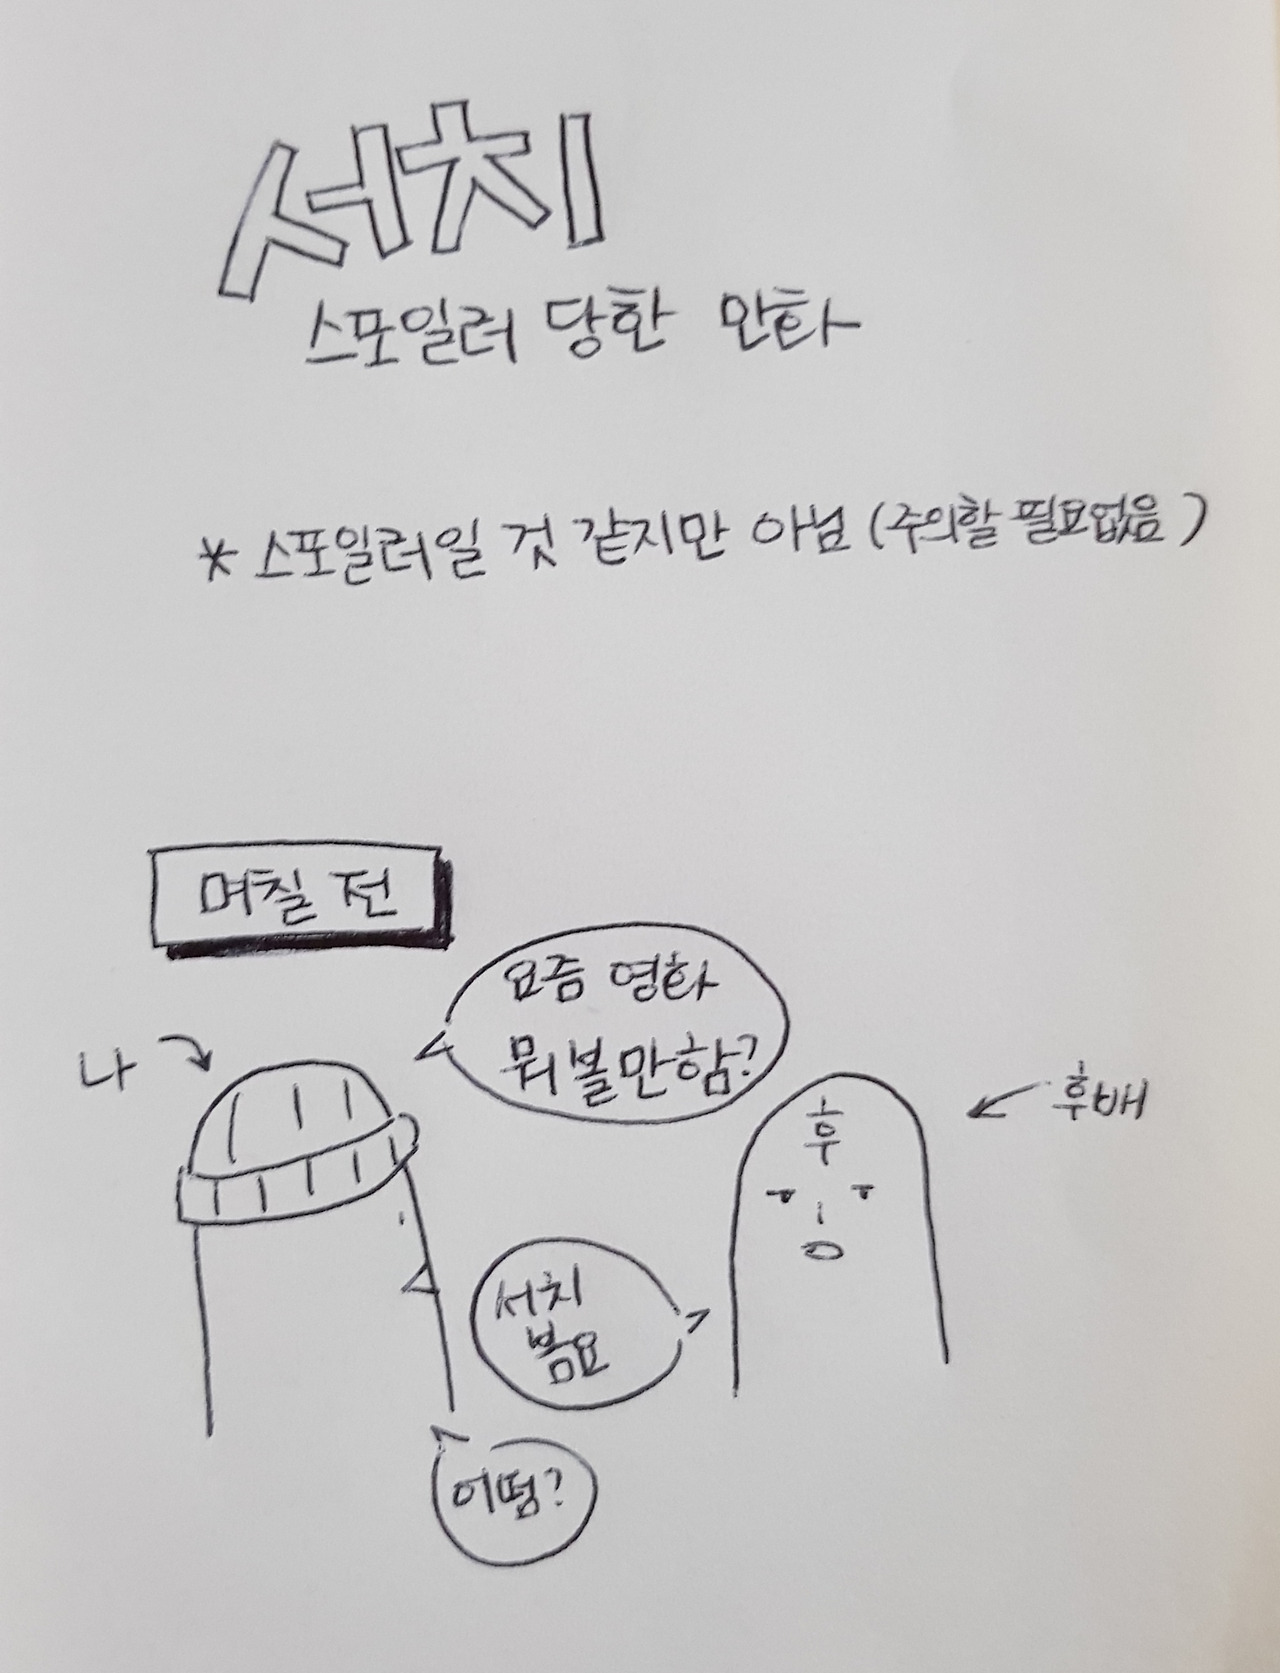 서치
스포일러 당한 만화
* 스포일러일 것 같지만 아님 (주의할 필요없음)
며칠 전
요즘 영화
뭐볼만함?
나
후배
후
서치
봄요
어떰?